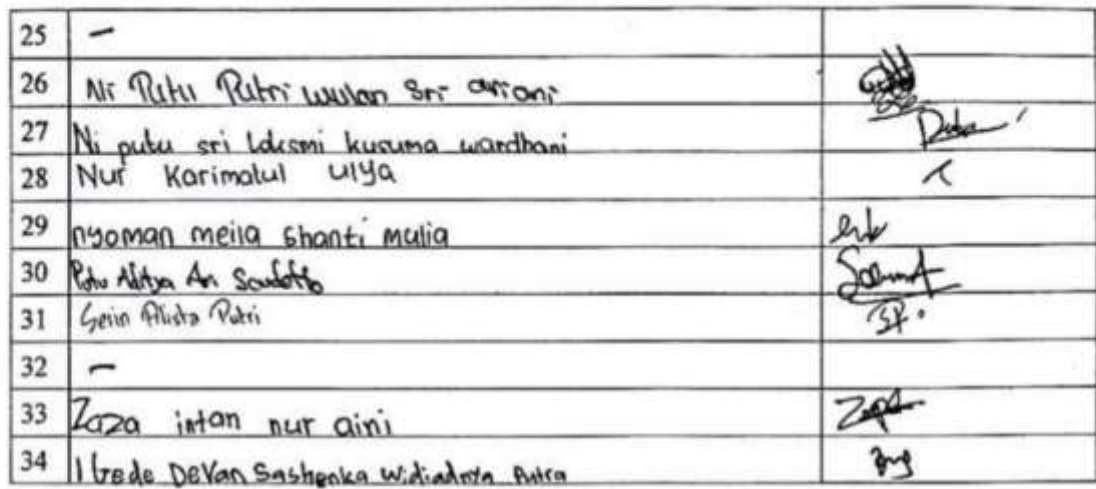 25 –
26 Ni Putu Putri wulan Sri ariani
27 Ni putu sri laksmi kusuma wardhani
28 Nur Karimatul ulya
29 nyoman meila shanti mulia
30 Putu Aditya Ari
31 Serin Alista Putri
32 –
33 Zaza intan nur aini
34 I Gede Devan Sashenka Widiadnya Putra